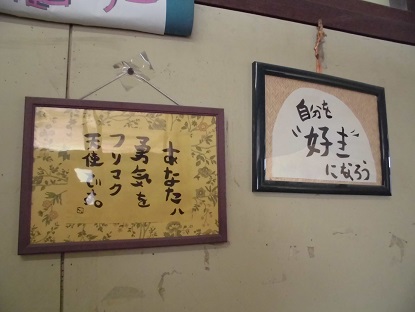 あなたハ
勇気を
フリマク
天使です。
自分を
"好き"
になろう